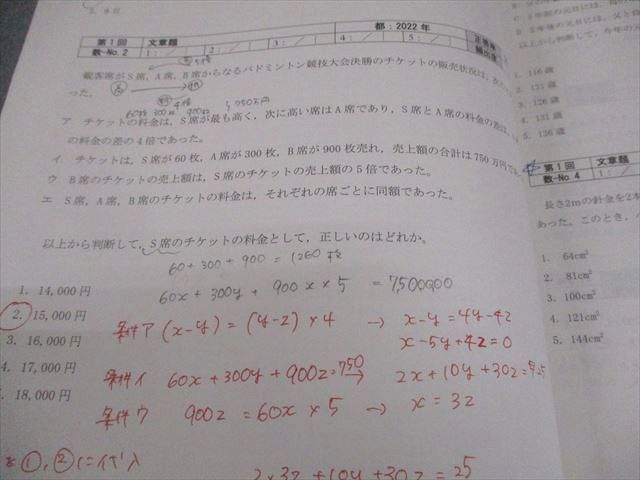 第1回 文章題 都:2022年
数-No.2 1: / 2: / 3: / 4: / 5: /
観客席がS席, A席, B席からなるバドミントン競技大会決勝のチケットの販売状況は, 次の
った。
60枚 300枚 900枚
ア チケットの料金は, S席が最も高く, 次に高い席はA席であり, S席とA席の料金の差は,
の料金の差の4倍であった。
イ チケットは, S席が60枚, A席が300枚, B席が900枚売れ, 売上額の合計は750万円で
ウ B席のチケットの売上額は, S席のチケットの売上額の5倍であった。
エ S席, A席, B席のチケットの料金は, それぞれの席ごとに同額であった。
以上から判断して, S席のチケットの料金として, 正しいのはどれか。
60+300+900=1260枚
60x+300y+900x×5=7500000
1. 14,000円
2. 15,000円
3. 16,000円
4. 17,000円
. 18,000円
条件ア (x-y)=(y-z)×4 → x-y=4y-4z
x-5y+4z=0
条件イ 60x+300y+900z=750 → 2x+10y+30z=
条件ウ 900z=60x×5 → x=3z
を①,②に代入
2×3z+10y+30z=25
以上から判断して, 今年の
1. 116歳
2. 121歳
3. 126歳
4. 131歳
5. 136歳
第1回 文章題
数-No.4 1: /
長さ2mの針金を2本
あった。このとき,
1. 64cm²
2. 81cm²
3. 100cm²
4. 121cm²
5. 144cm²